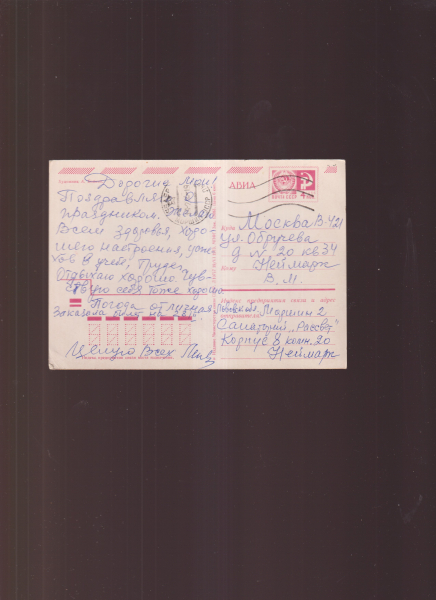 Дорогие мои!
Поздравляю
праздником. Желаю
Всем здоровья, хоро-
шего настроения, успе-
хов в учебе, труде.
Отдыхаю хорошо. Чув-
ствую себя тоже хорошо
Погода отличная.
Заказала билет на
Целую Всех
АВИА
ПОЧТА СССР
Куда Москва В-421
ул. Обручева
д. N 20 кв 34
Кому Неймарк
В. М.
Индекс предприятия связи и адрес
отправителя
Санаторий „Рассвет"
Корпус 8 комн. 20
Неймарк